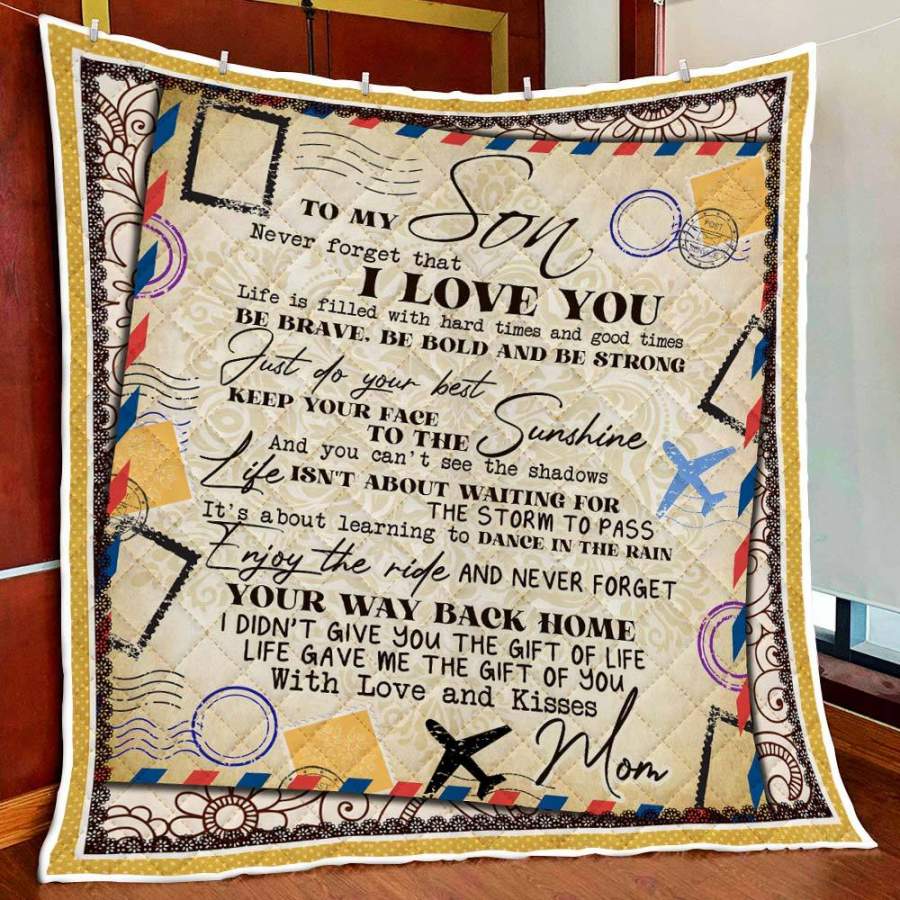 TO MY Son
Never forget that
I LOVE YOU
Life is filled with hard times and good times
BE BRAVE, BE BOLD AND BE STRONG
Just do your best
KEEP YOUR FACE
TO THE Sunshine
And you can't see the shadows
Life ISN'T ABOUT WAITING FOR
THE STORM TO PASS
It's about learning to DANCE IN THE RAIN
Enjoy the ride AND NEVER FORGET
YOUR WAY BACK HOME
I DIDN'T GIVE YOU THE GIFT OF LIFE
LIFE GAVE ME THE GIFT OF YOU
With Love and Kisses
Mom
POST